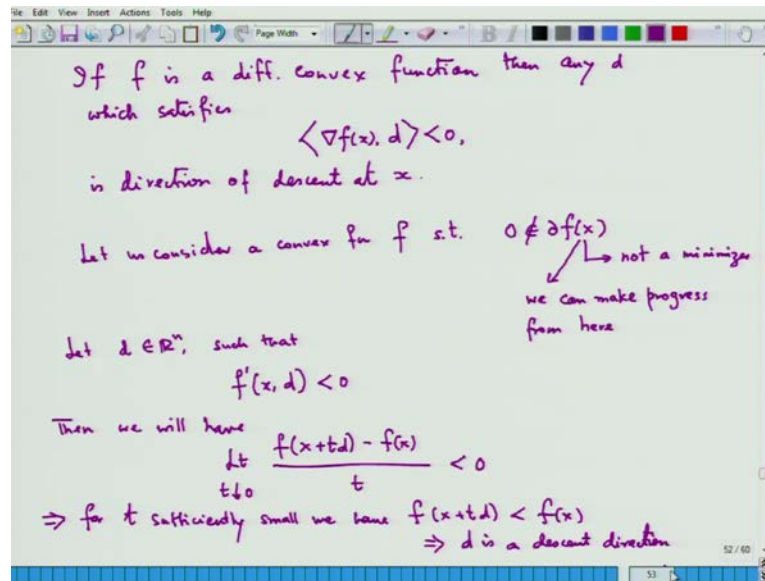 File Edit View Insert Actions Tools Help
Page Width
If f is a diff. convex function then any d
which satisfies
⟨∇f(x), d⟩ < 0,
is direction of descent at x.
Let us consider a convex fn f s.t. 0 ∉ ∂f(x)
↳ not a minimizer
we can make progress
from here
Let d ∈ ℝⁿ, such that
f'(x, d) < 0
Then we will have
Lt f(x+td) - f(x) < 0
t↓0 t
⇒ for t sufficiently small we have f(x+td) < f(x)
⇒ d is a descent direction
52 / 60
53